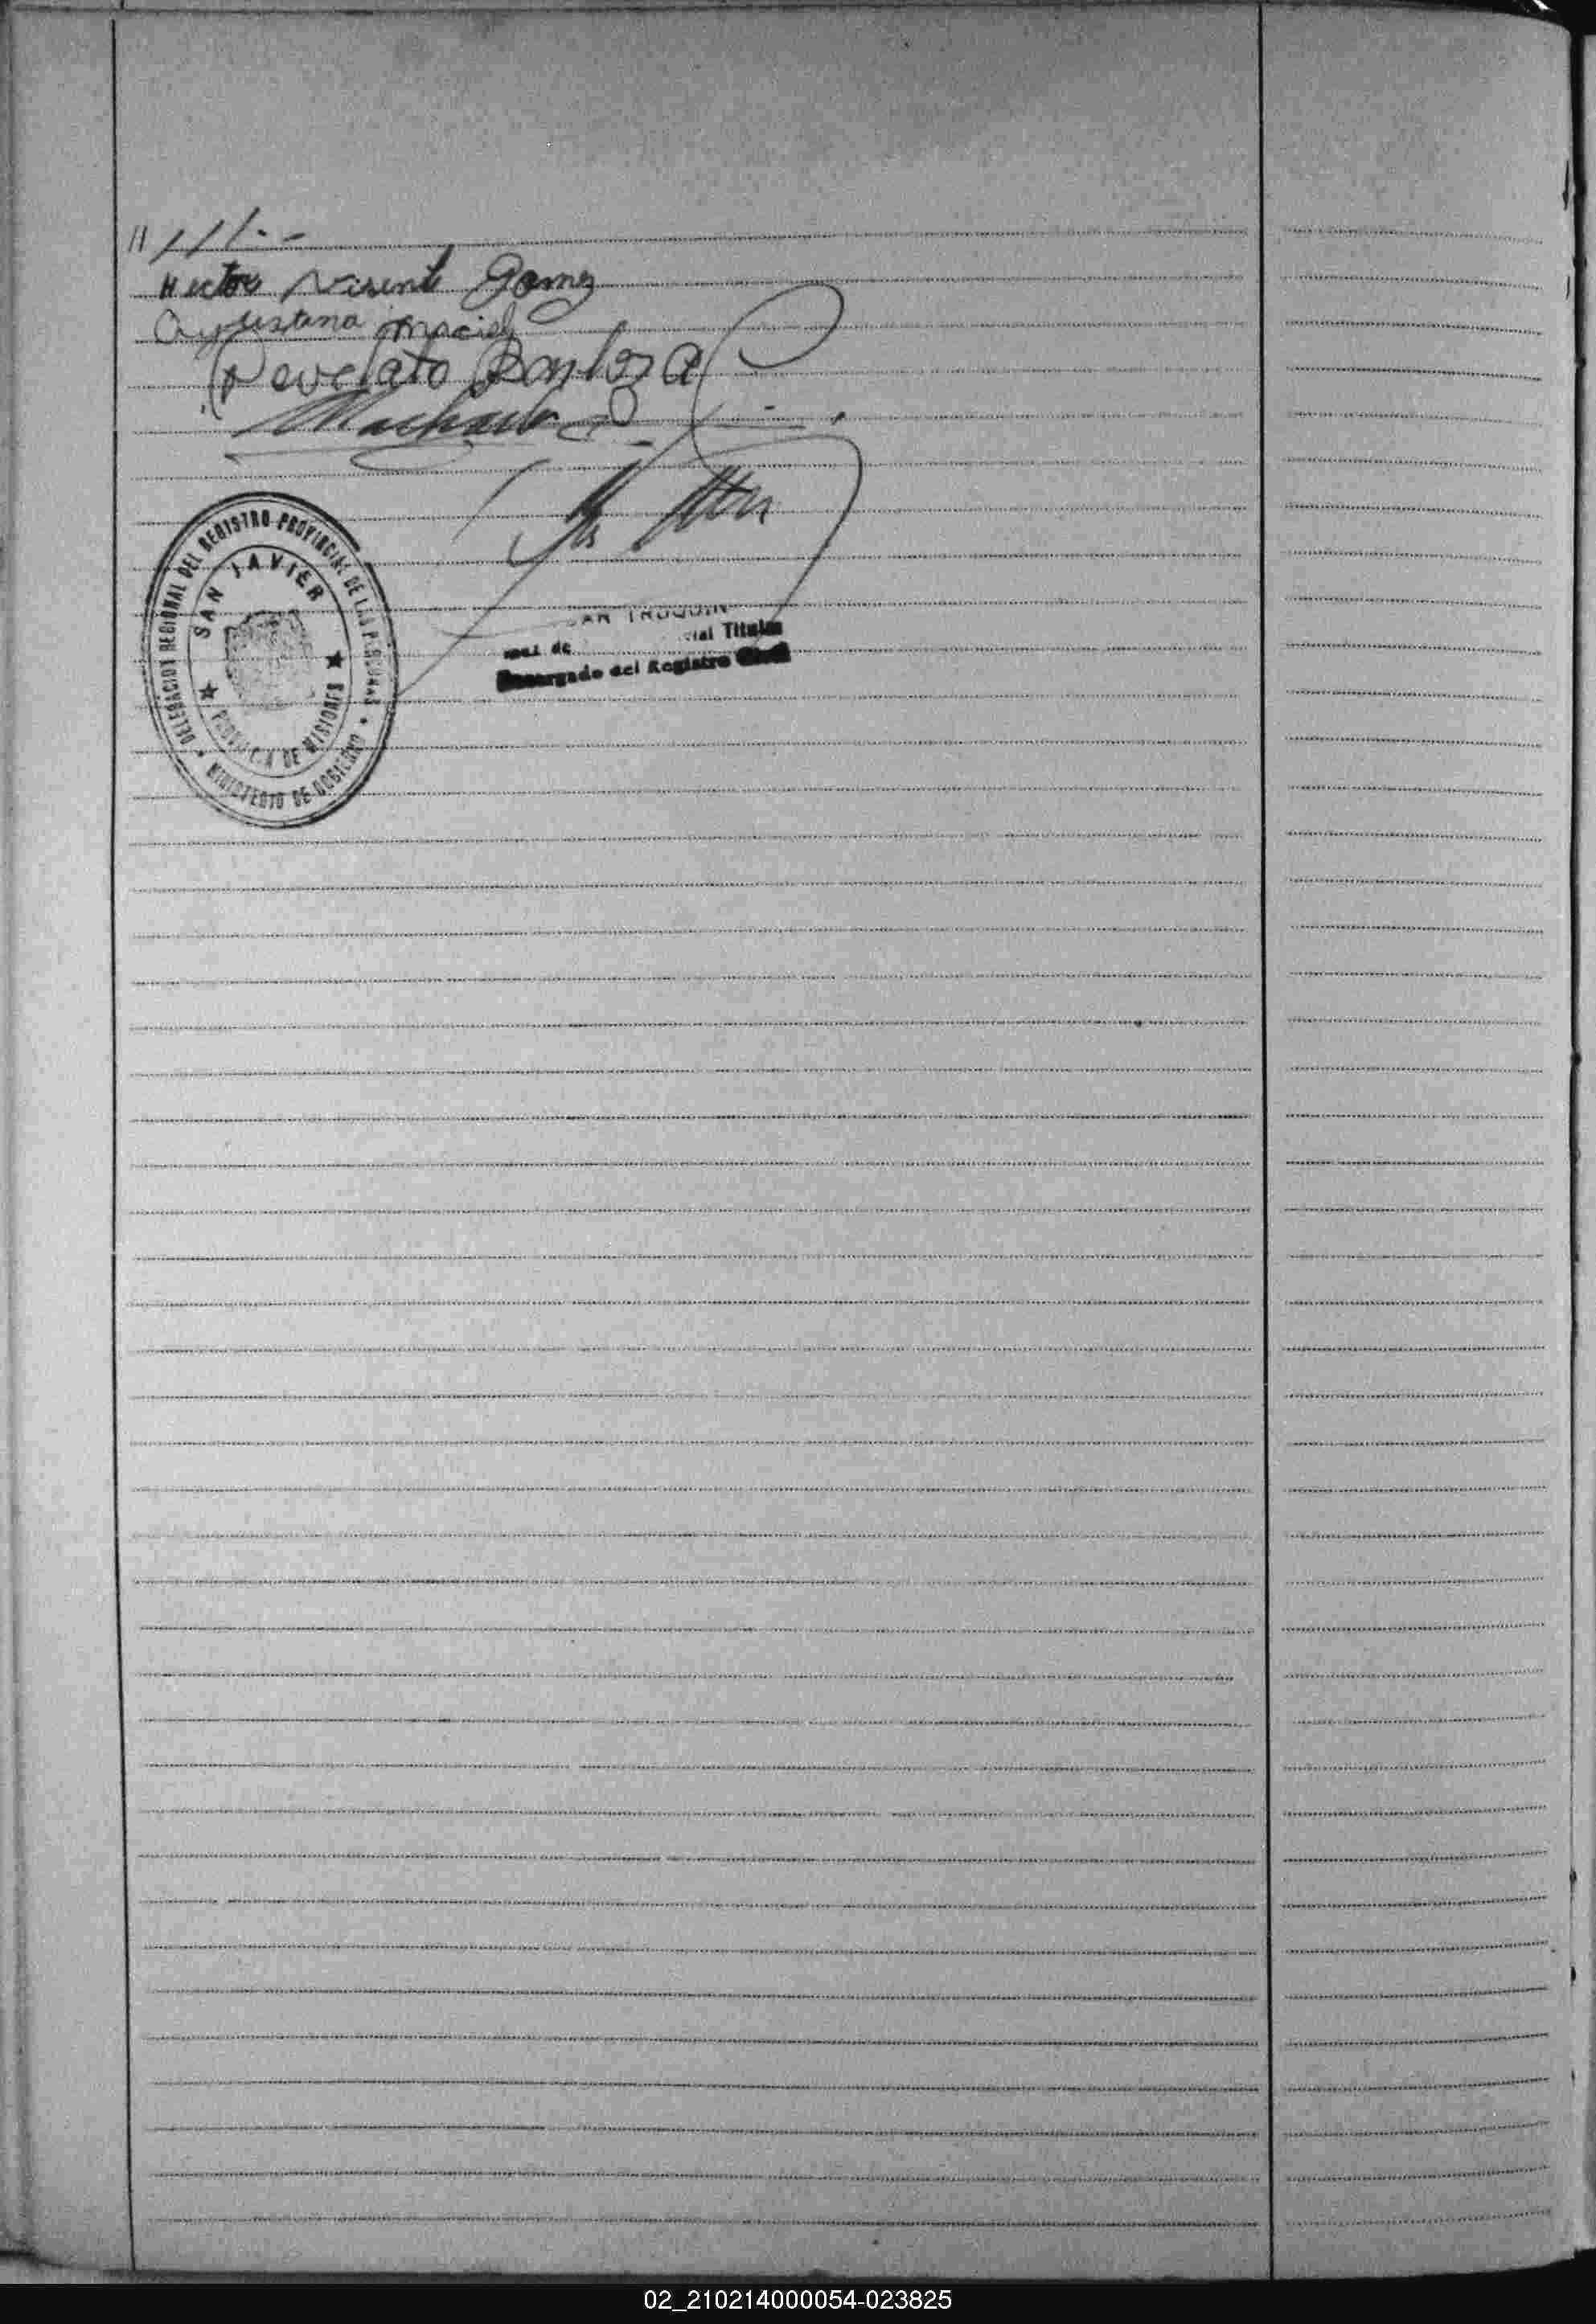 ///.-
Hector Visente Gomez
Agustina Maciel
Barboza
Machado
DELEGACION REGIONAL DEL REGISTRO PROVINCIAL DE LAS PERSONAS
SAN JAVIER
PROVINCIA DE MISIONES
MINISTERIO DE GOBIERNO
Titular
Encargado del Registro Civil
02_210214000054-023825